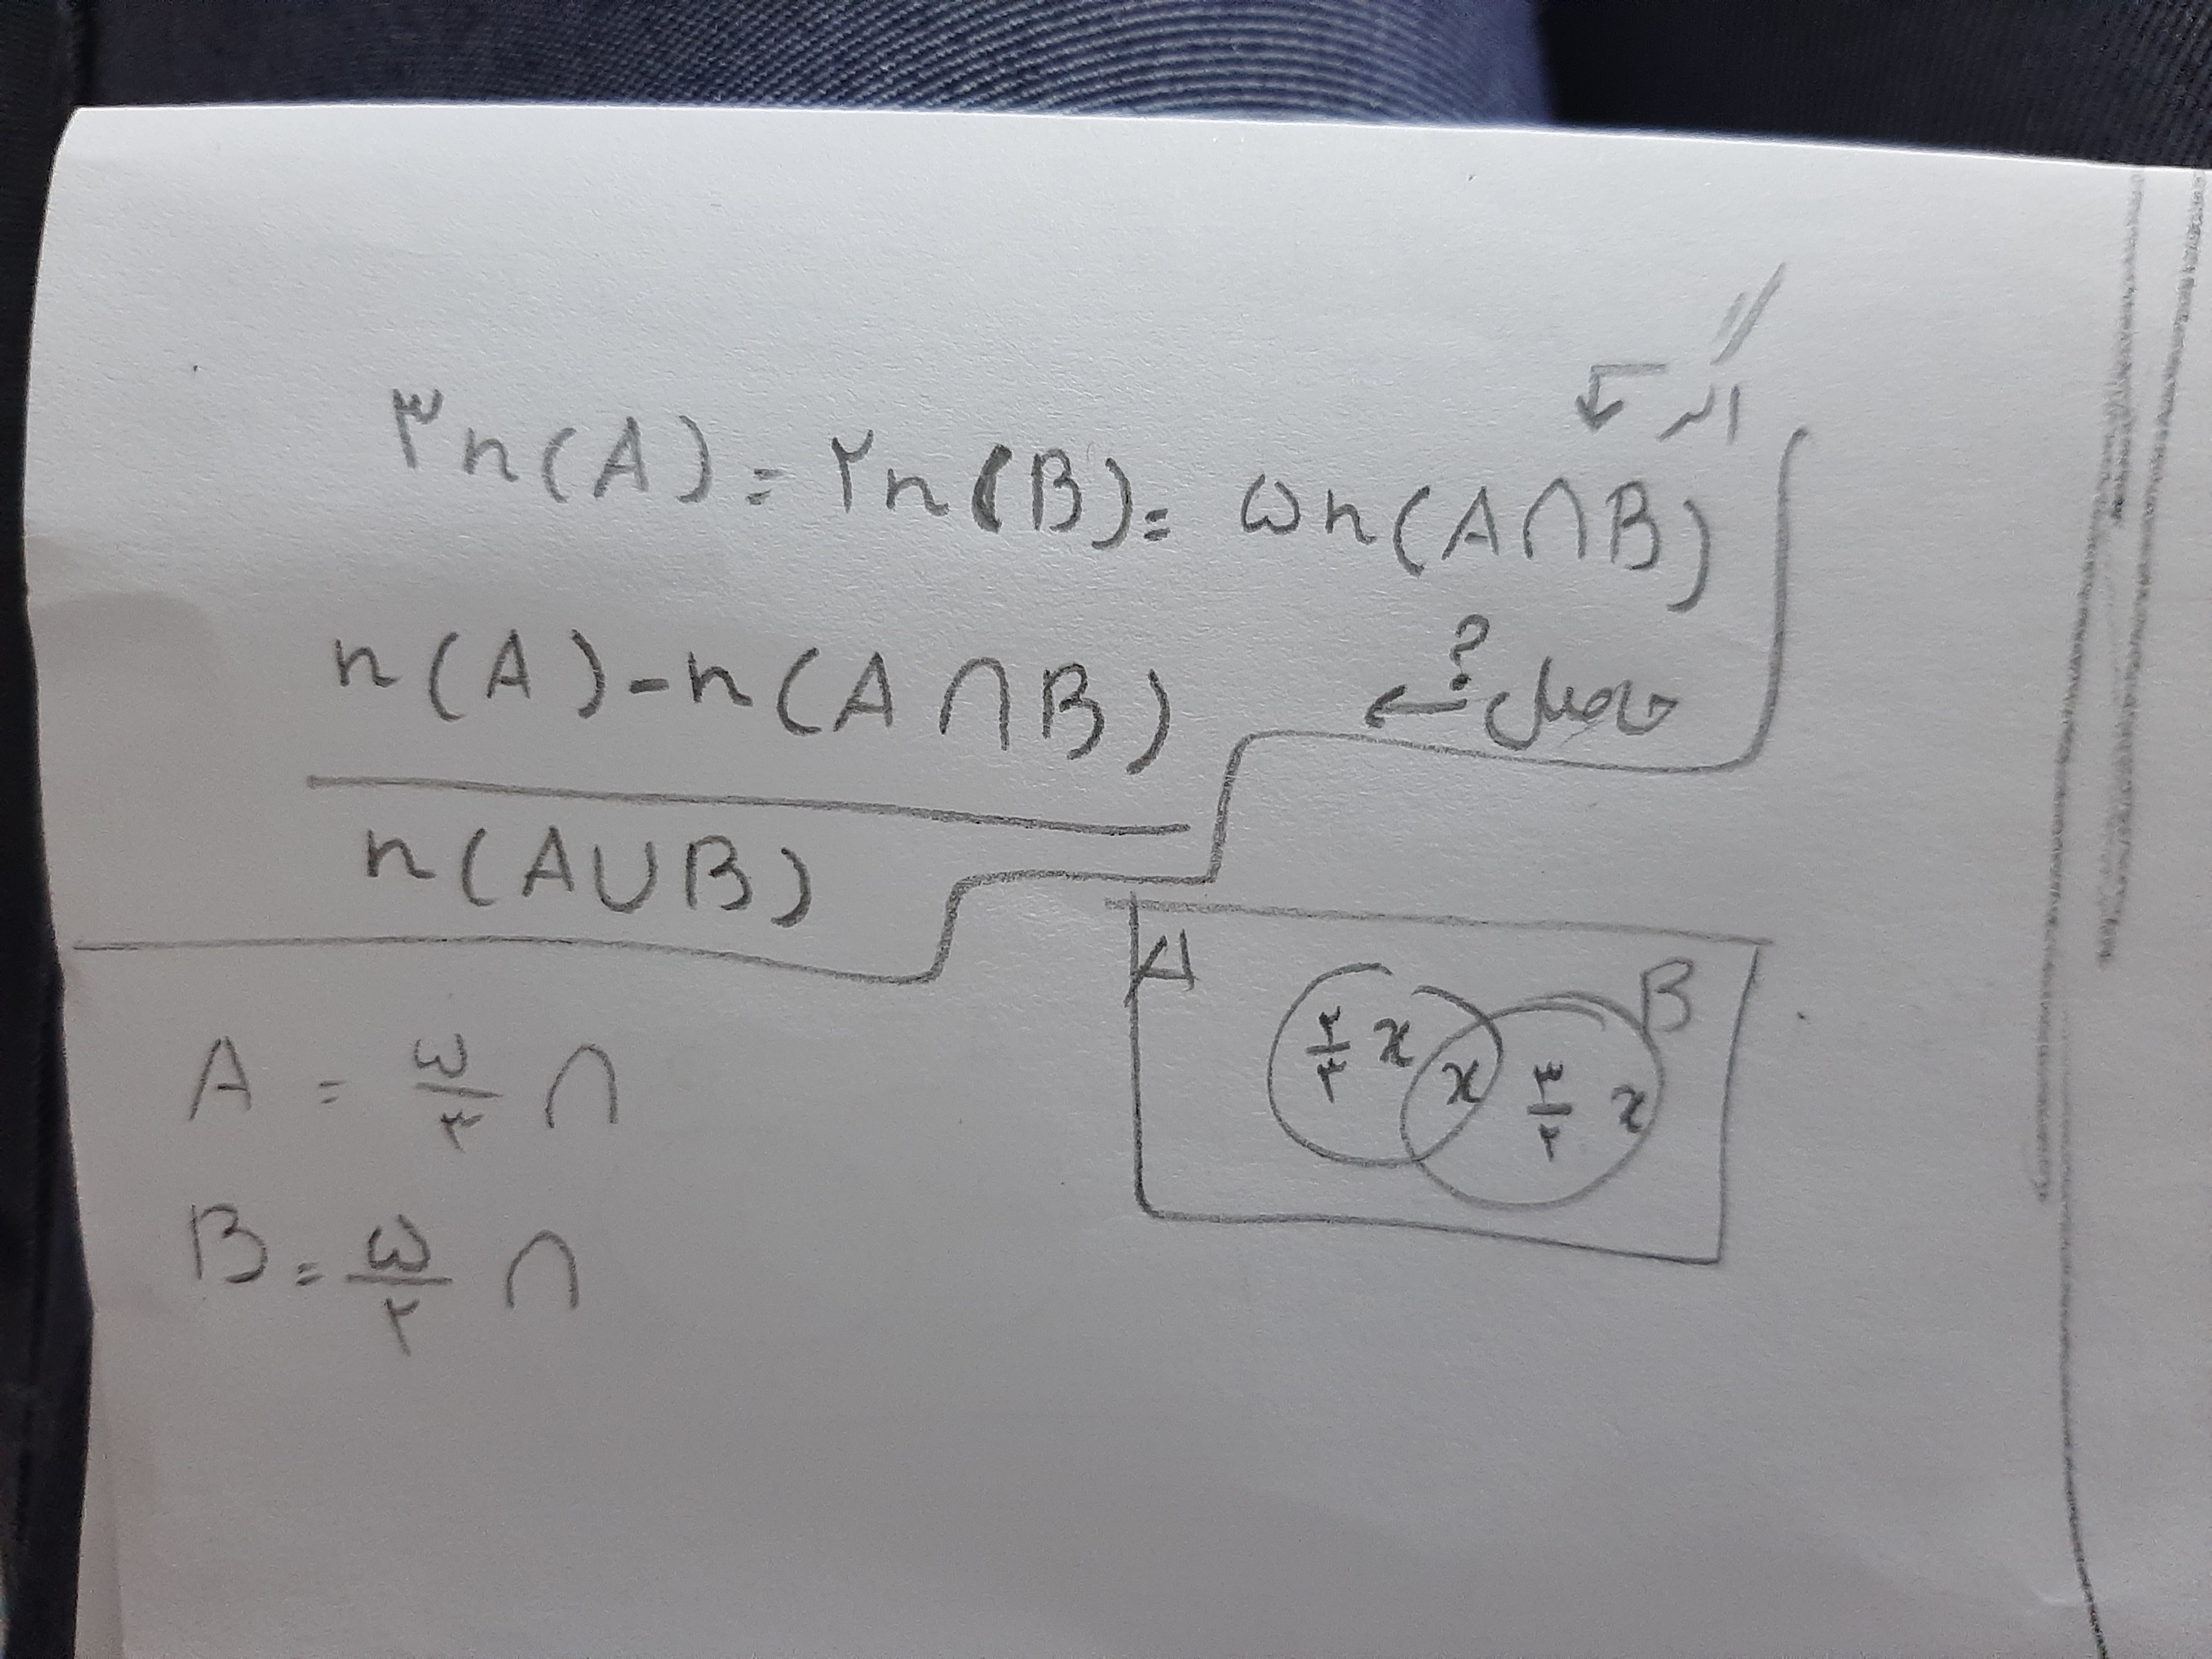 اگر
۳n(A) = ۲n(B) = ۵n(A∩B)
حاصل؟
n(A)-n(A∩B)
n(A∪B)
A B
۲/۳ x x ۳/۲ x
A = ۵/۳ ∩
B = ۵/۲ ∩